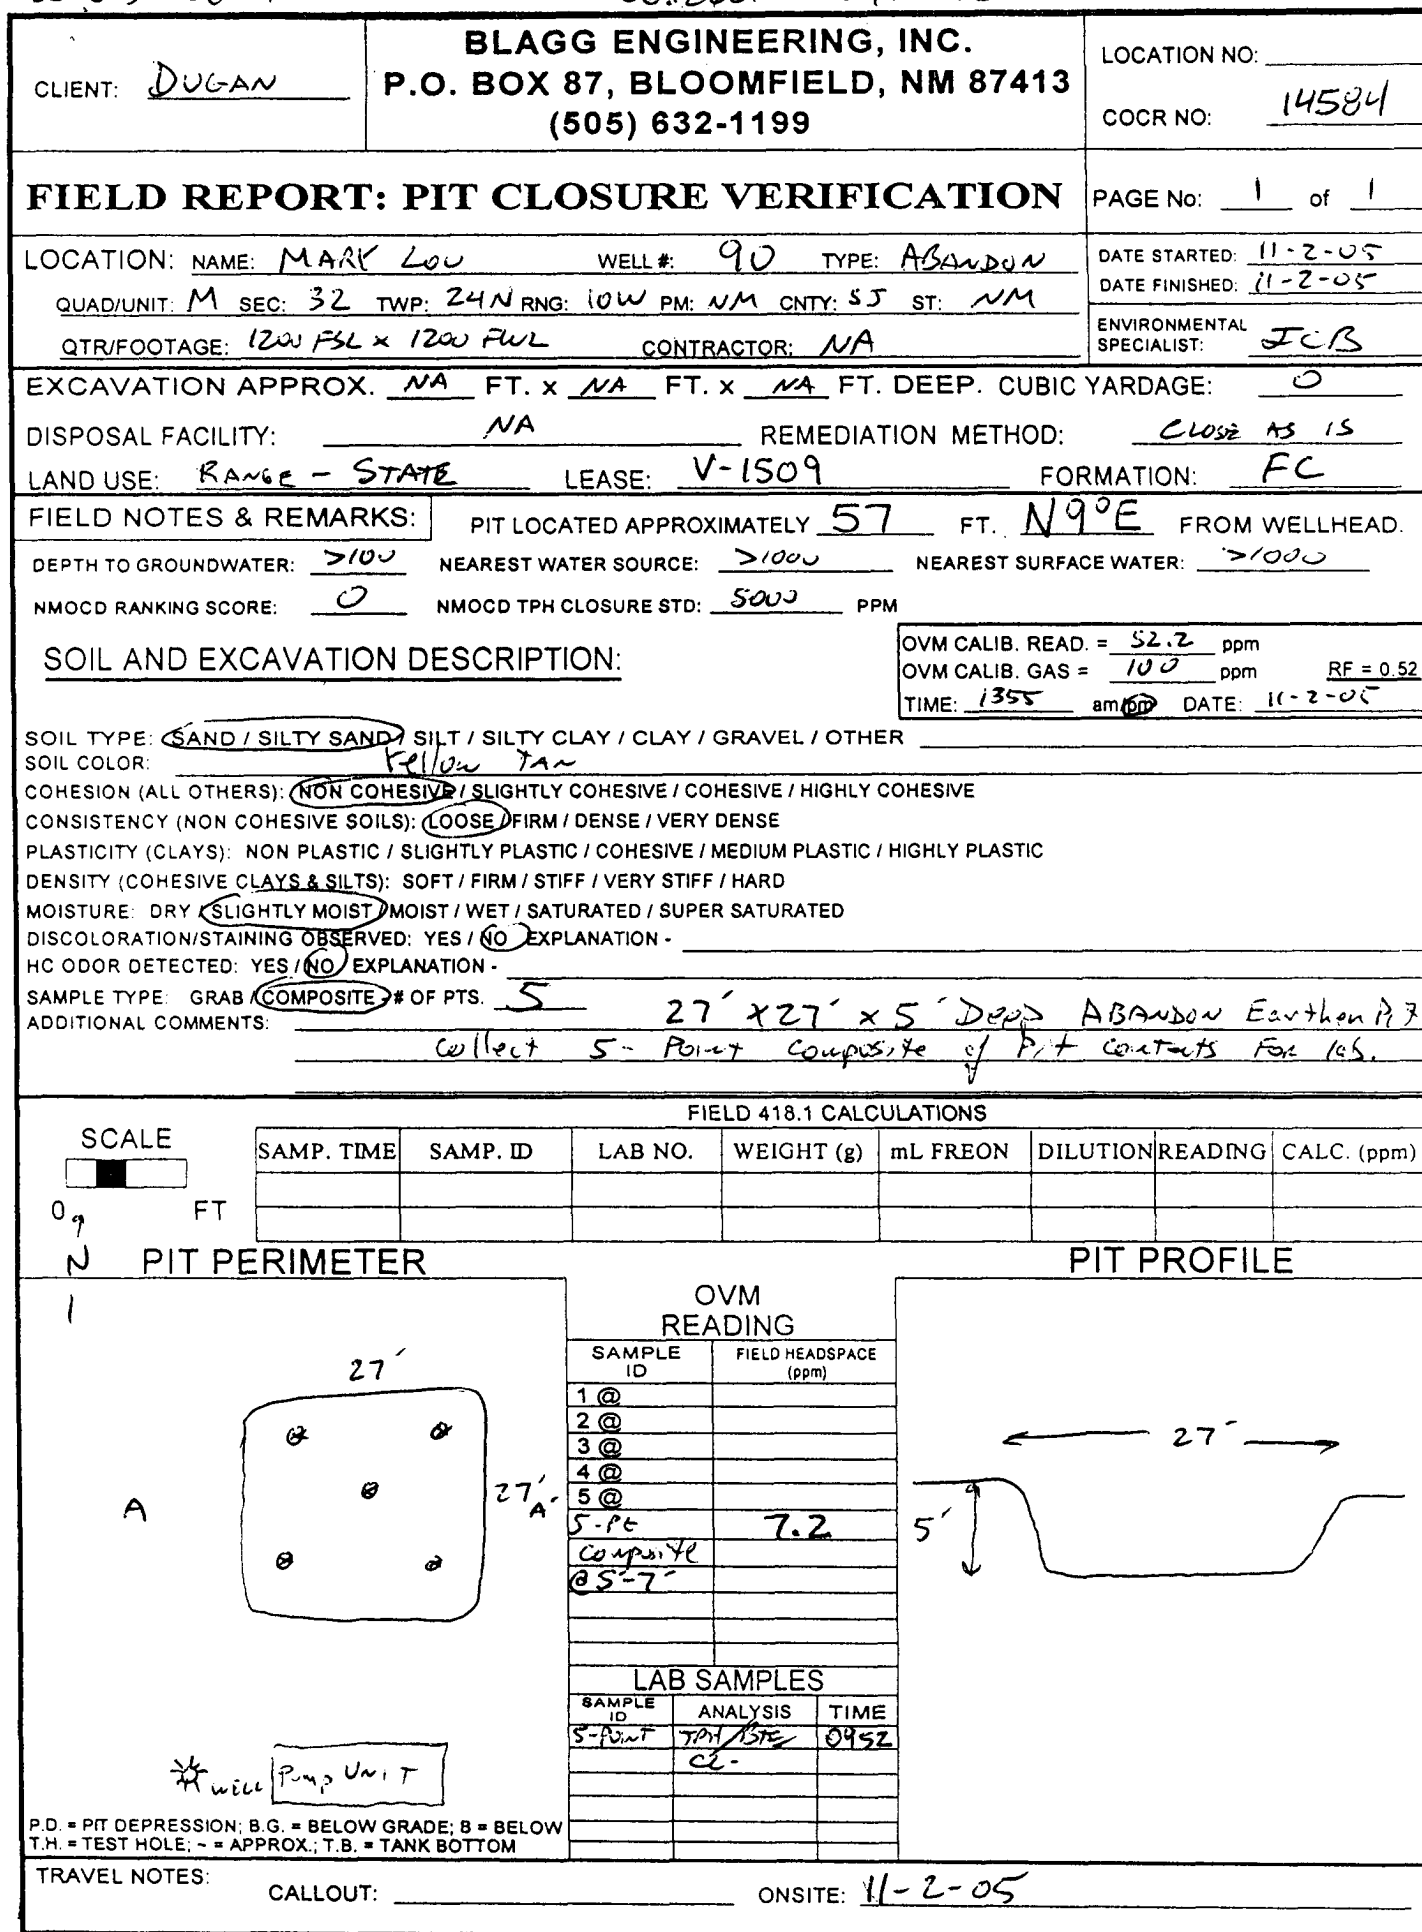 BLAGG ENGINEERING, INC.
P.O. BOX 87, BLOOMFIELD, NM 87413
(505) 632-1199
CLIENT: DUGAN
LOCATION NO:
COCR NO: 14584
FIELD REPORT: PIT CLOSURE VERIFICATION
PAGE No: 1 of 1
LOCATION: NAME: MARY LOU WELL #: 90 TYPE: ABANDON
QUAD/UNIT: M SEC: 32 TWP: 24N RNG: 10W PM: NM CNTY: SJ ST: NM
QTR/FOOTAGE: 1200 FSL x 1200 FWL CONTRACTOR: NA
DATE STARTED: 11-2-05
DATE FINISHED: 11-2-05
ENVIRONMENTAL
SPECIALIST: JCB
EXCAVATION APPROX. NA FT. x NA FT. x NA FT. DEEP. CUBIC YARDAGE: 0
DISPOSAL FACILITY: NA REMEDIATION METHOD: CLOSE AS IS
LAND USE: RANGE - STATE LEASE: V-1509 FORMATION: FC
FIELD NOTES & REMARKS: PIT LOCATED APPROXIMATELY 57 FT. N9°E FROM WELLHEAD.
DEPTH TO GROUNDWATER: >100 NEAREST WATER SOURCE: >1000 NEAREST SURFACE WATER: >1000
NMOCD RANKING SCORE: 0 NMOCD TPH CLOSURE STD: 5000 PPM
SOIL AND EXCAVATION DESCRIPTION:
OVM CALIB. READ. = 52.2 ppm
OVM CALIB. GAS = 100 ppm RF = 0.52
TIME: 1355 am/pm DATE: 11-2-05
SOIL TYPE: SAND / SILTY SAND / SILT / SILTY CLAY / CLAY / GRAVEL / OTHER
SOIL COLOR: Yellow TAN
COHESION (ALL OTHERS): NON COHESIVE / SLIGHTLY COHESIVE / COHESIVE / HIGHLY COHESIVE
CONSISTENCY (NON COHESIVE SOILS): LOOSE / FIRM / DENSE / VERY DENSE
PLASTICITY (CLAYS): NON PLASTIC / SLIGHTLY PLASTIC / COHESIVE / MEDIUM PLASTIC / HIGHLY PLASTIC
DENSITY (COHESIVE CLAYS & SILTS): SOFT / FIRM / STIFF / VERY STIFF / HARD
MOISTURE: DRY / SLIGHTLY MOIST / MOIST / WET / SATURATED / SUPER SATURATED
DISCOLORATION/STAINING OBSERVED: YES / NO EXPLANATION -
HC ODOR DETECTED: YES / NO EXPLANATION -
SAMPLE TYPE: GRAB / COMPOSITE - # OF PTS. 5
ADDITIONAL COMMENTS: 27' x 27' x 5' Deep ABANDON Earthen Pit
Collect 5-Point Composite of Pit Contents For lab.
FIELD 418.1 CALCULATIONS
SCALE
0 FT
SAMP. TIME SAMP. ID LAB NO. WEIGHT (g) mL FREON DILUTION READING CALC. (ppm)
N PIT PERIMETER
PIT PROFILE
27'
27'
A
A'
OVM
READING
SAMPLE ID FIELD HEADSPACE (ppm)
1 @
2 @
3 @
4 @
5 @
5-Pt 7.2
Composite
@ 5'-7'
27'
5'
LAB SAMPLES
SAMPLE ID ANALYSIS TIME
5-Point TPH/BTEX 0952
Cl-
well Pump UNIT
P.D. = PIT DEPRESSION; B.G. = BELOW GRADE; B = BELOW
T.H. = TEST HOLE; ~ = APPROX.; T.B. = TANK BOTTOM
TRAVEL NOTES:
CALLOUT: ONSITE: 11-2-05